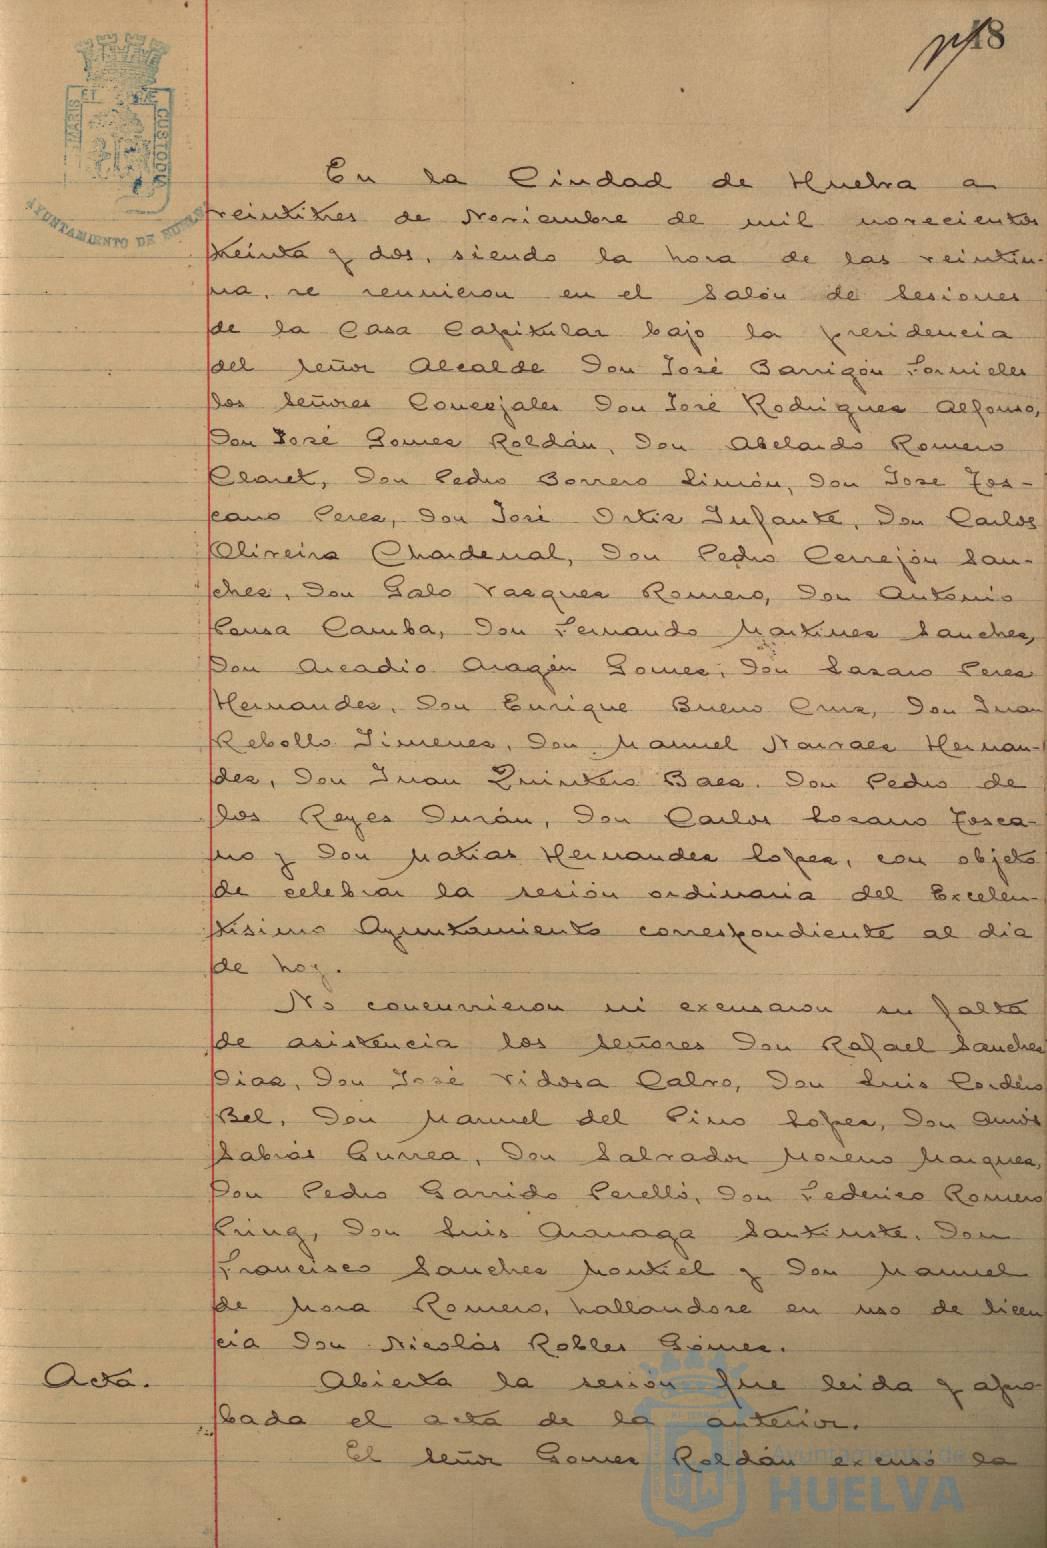 18
MARIS ET TERRÆ CUSTODIA
AYUNTAMIENTO DE HUELVA
En la Ciudad de Huelva a
veintitres de Noviembre de mil novecientos
treinta y dos, siendo la hora de las veintiu-
na, se reunieron en el Salón de Sesiones
de la Casa Capitular bajo la presidencia
del señor Alcalde Don José Barrigón Fornieles
los Señores Concejales Don José Rodriguez Alfonso,
Don José Gomez Roldán, Don Abelardo Romero
Claret, Don Pedro Borrero Limón, Don Jose Tos-
cano Perez, Don José Ortiz Infante, Don Carlos
Oliveira Chardenal, Don Pedro Cerrejón San-
chez, Don Galo Vazquez Romero, Don Antonio
Pousa Camba, Don Fernando Martinez Sanchez,
Don Arcadio Aragón Gomez, Don Lazaro Perez
Hernandez, Don Enrique Bueno Cruz, Don Juan
Rebollo Jimenez, Don Manuel Narvaez Hernan-
dez, Don Juan Quintero Baez, Don Pedro de
los Reyes Durán, Don Carlos Lozano Tosca-
no y Don Matias Hernandez Lopez, con objeto
de celebrar la sesión ordinaria del Excelen-
tisimo Ayuntamiento correspondiente al dia
de hoy.
No concurrieron ni excusaron su falta
de asistencia los señores Don Rafael Sanchez
Diaz, Don José Vidosa Calvo, Don Luis Cordero
Bel, Don Manuel del Pino Lopez, Don Amós
Sabrás Gurrea, Don Salvador Moreno Marquez,
Don Pedro Garrido Perelló, Don Federico Romero
Pring, Don Luis Aranaga Santiuste, Don
Francisco Sanchez Montiel y Don Manuel
de Mora Romero, hallandose en uso de licen
cia Don Nicolás Robles Gómez.
Acta.
Abierta la sesión fue leida y apro-
bada el acta de la anterior.
El señor Gomez Roldán excusó la
Ayuntamiento de
HUELVA